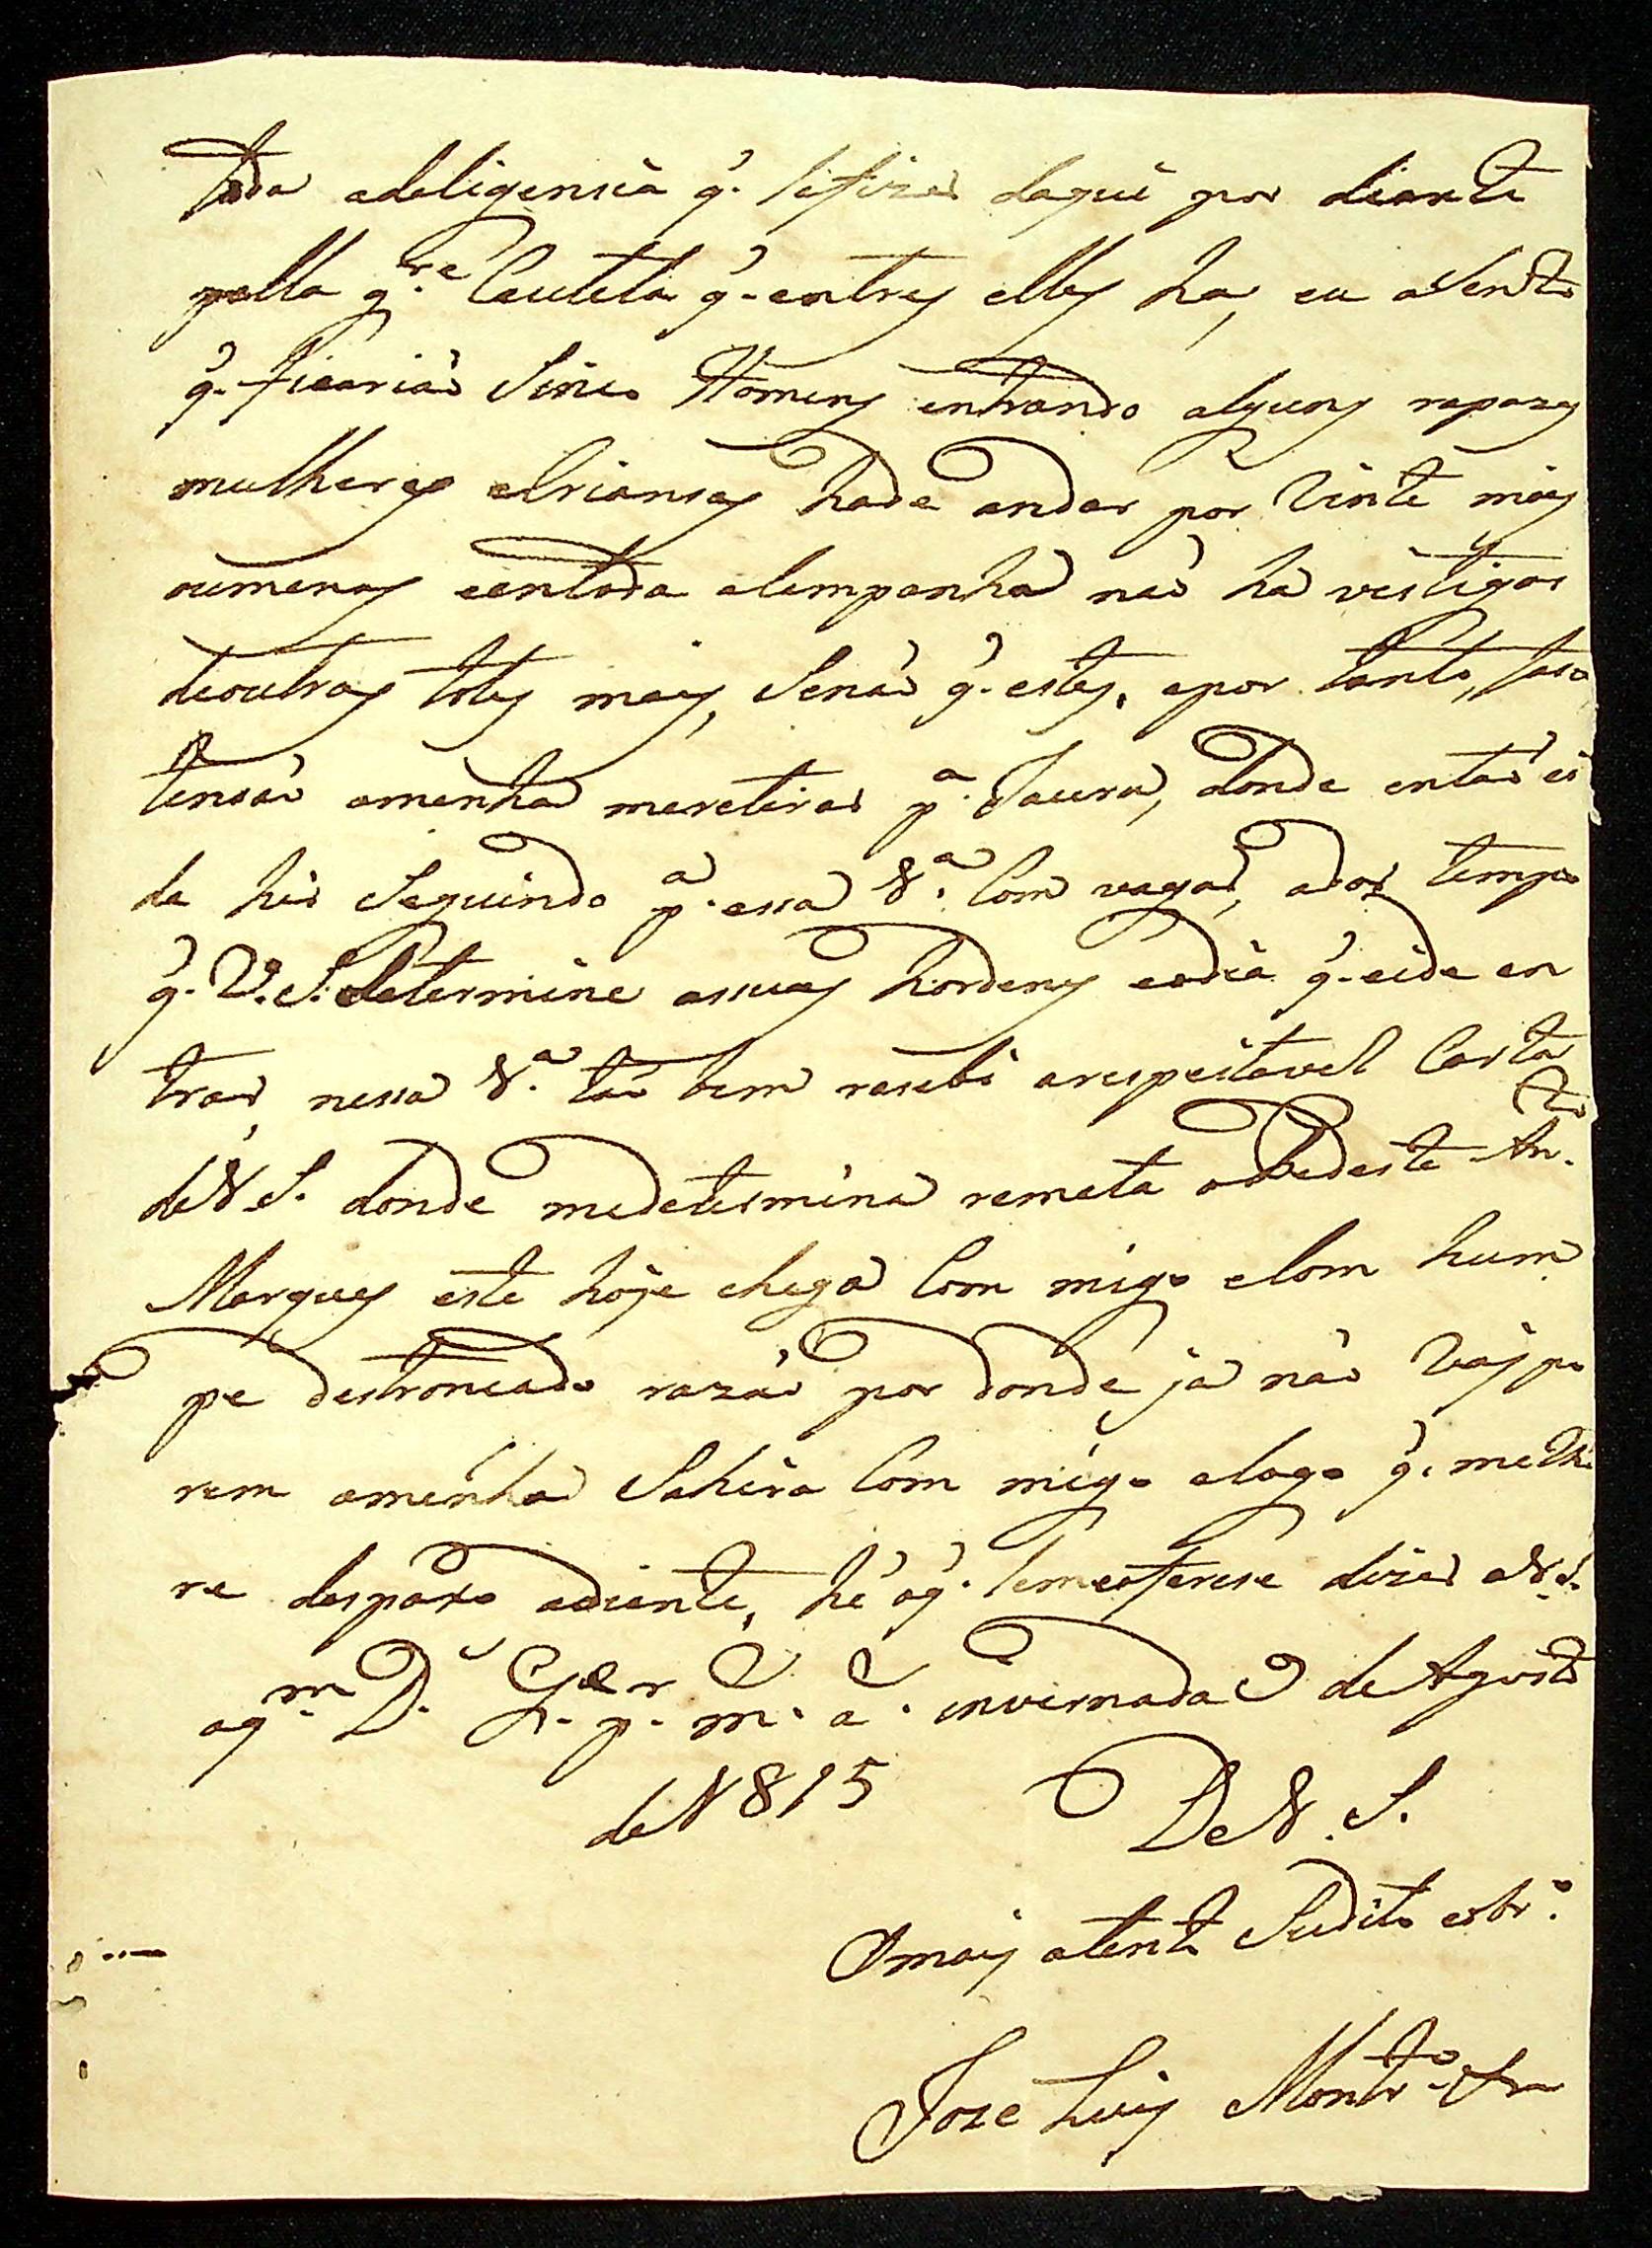 toda adeligensia q̃. sefizer daqui por diante
pella g.ᵈᵉ Cautela q̃. entrej ellej ha, eu asento
q̃. ficariaõ Sinco Homenj entrando algunj rapazej
mulherej eCriansaj hade andar por Vinte maij
oumenoj eentoda aCampanha naõ ha vestigos
deoutraj totej maij, Senaõ q̃. estej, epor tanto, faso
tensaõ amenha meretirar p.ᵃ Jauru, donde entaõ ei
de hir Seguindo p.ᵃ essa V.ᵃ Com vagar, ador tempo
q̃. V. S. Determine assuaj hordenj eodia q̃. eide en
trar, nessa V.ᵃ taõ bem resebi arespeitavel Carta
deV. S. donde medetermina remeta oPedeste An.ᵗᵒ
Marquej este hoje chega Com migo eCom hum
pe destroncado razaõ por donde ja naõ Vaj po
rem amenha Sahira Com migo eLogo q̃. melho
re despaxo adiente, he oq̃. semeoferese dizer aV. S.
aq.ᵐ D.ˢ G.ᵈᵉ p.ʳ m.ˢ a.ˢ invernada 9 de Agosto
de1815 DeV. S.
Omaij atento Sudito eobr.º
Joze Luij Montr.º